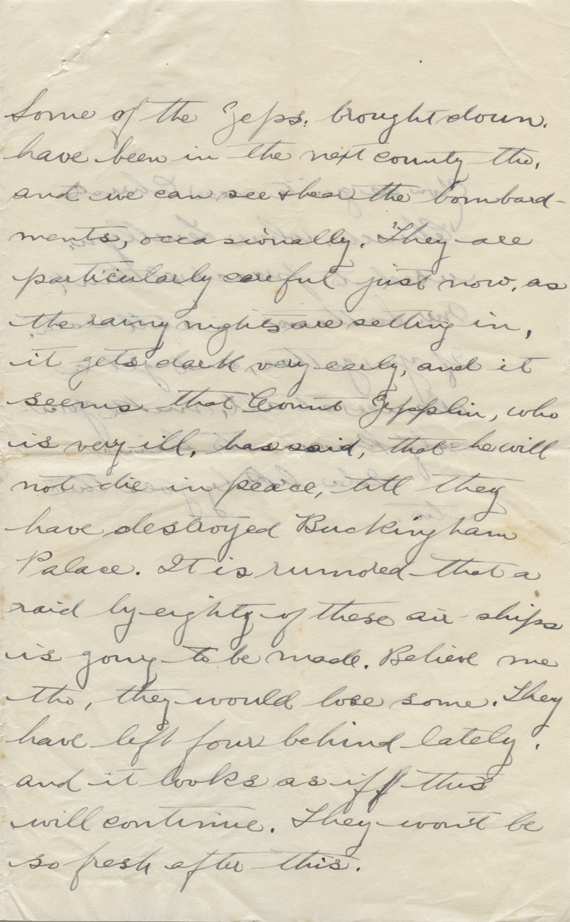 Some of the Zeps. brought down.
have been in the next county tho,
and we can see & hear the bombard-
ments, occasionally. They are
particularly careful just now, as
the rainy nights are setting in,
it gets dark very early, and it
seems that Count Zepplin, who
is very ill, has said, that he will
not die in peace, till they
have destroyed Buckingham
Palace. It is rumored that a
raid by eighty of these air-ships
is going to be made. Believe me
tho, they would lose some. They
have left four behind lately.
and it looks as if this
will continue. They won't be
so fresh after this.